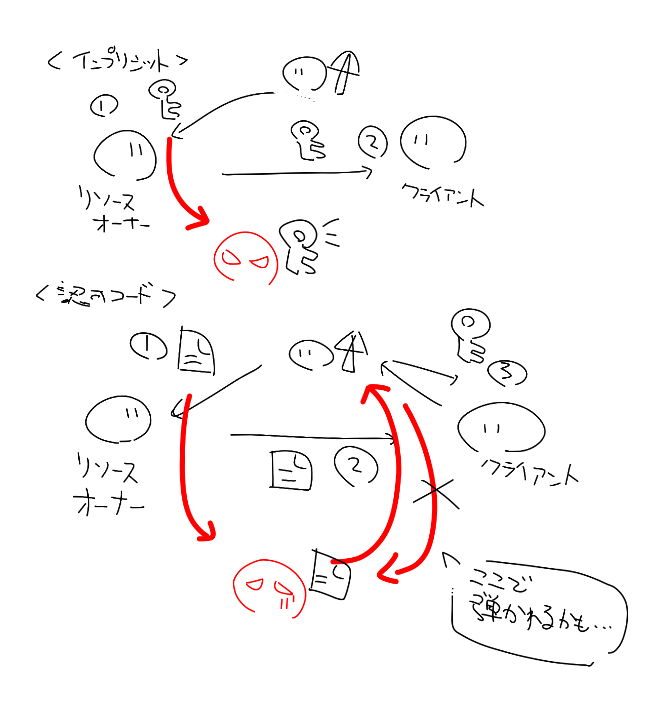 <インプリシット>
①
②
リソース
オーナー
クライアント
<認可コード>
①
③
リソース
オーナー
②
クライアント
ここで
弾かれるかも…